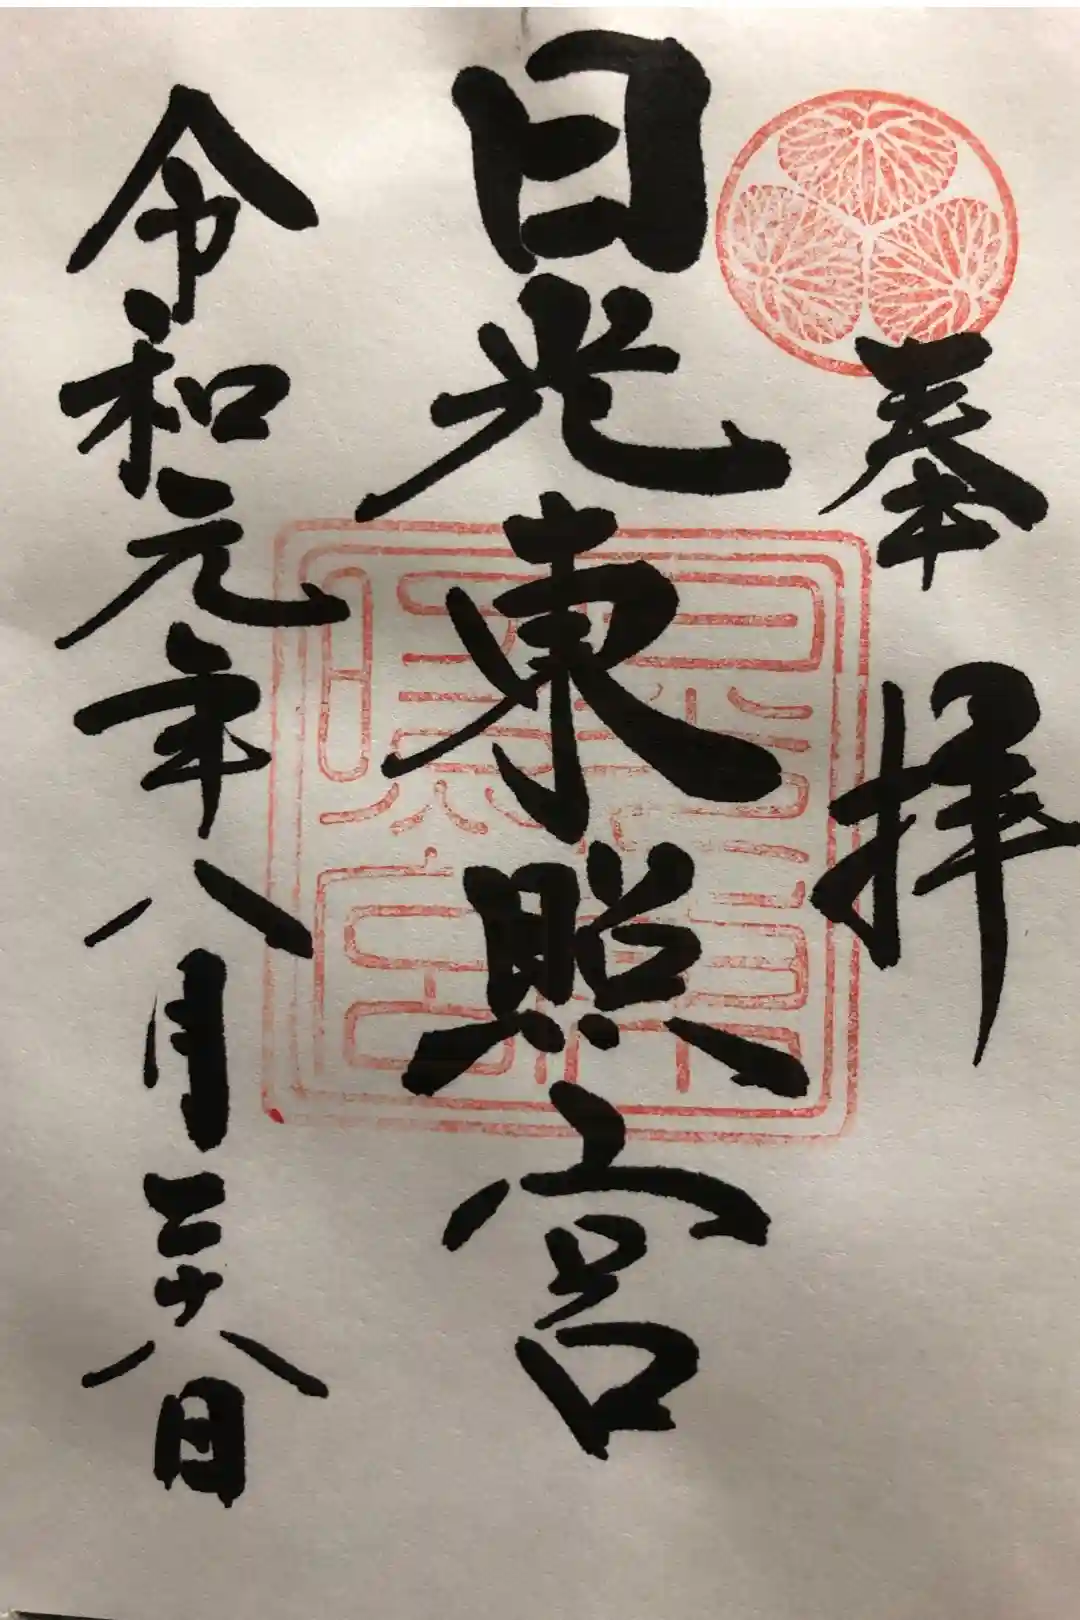 奉拝
日光東照宮
令和元年八月二十八日